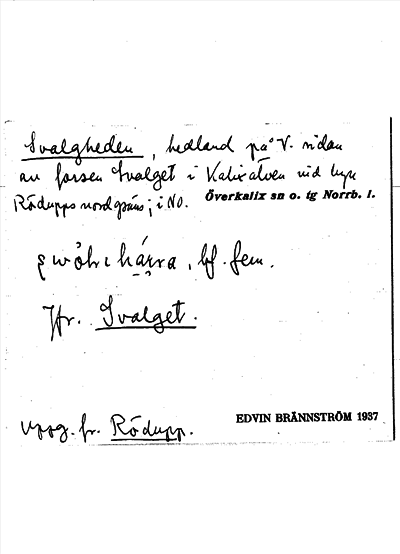 Svalgheden, hedland på V. sidan
av forsen Svalget i Kalixälven vid byn
Rödupps nordgräns; i NO. Överkalix sn o. tg Norrb. l.
bf. fem.
Jfr. Svalget.
Uppg. fr. Rödupp.
EDVIN BRÄNNSTRÖM 1937